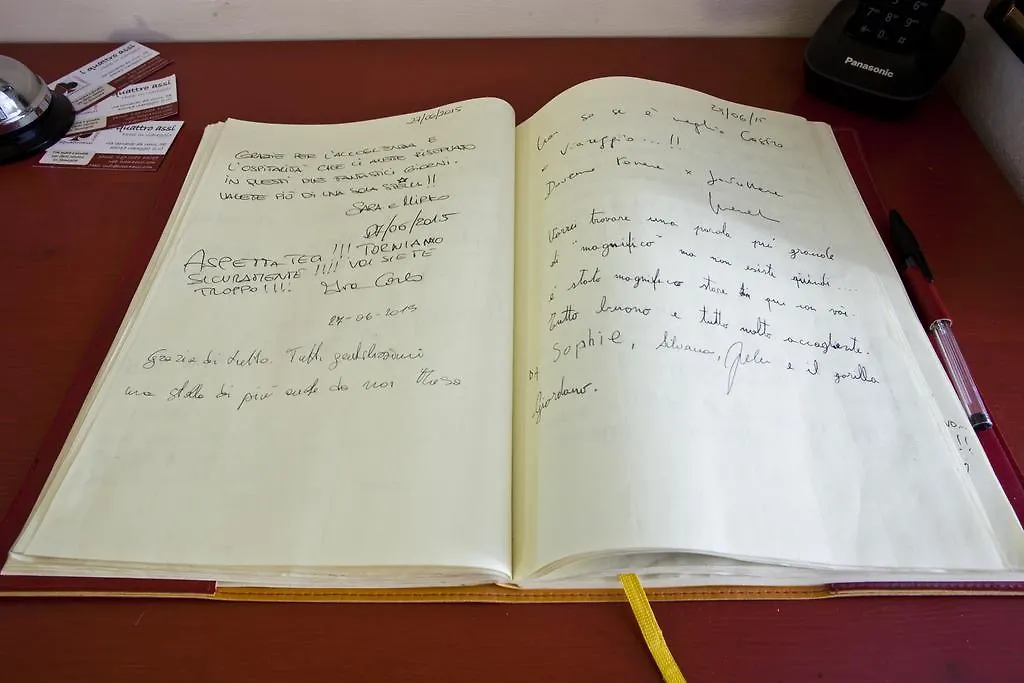 27/06/2015
GRAZIE PER L'ACCOGLIENZA E
L'OSPITALITÀ CHE CI AVETE RISERVATO
IN QUESTI DUE FANTASTICI GIORNI.
VALETE PIÙ DI UNA SOLA STELLA!!
SARA e MIRKO
27/06/2015
ASPETTATECI!!! TORNIAMO
SICURAMENTE!!!! VOI SIETE
TROPPO!!!!
27-06-2015
Grazie di tutto. Tutti gentilissimi
una stella di più anche da noi
28/06/15
Non so se è meglio Castro
o Viareggio...!!
Dovremo tornare x
Vorrei trovare una parola più grande
di "magnifico" ma non esiste quindi....
è stato magnifico stare qui con voi.
Tutto buono e tutto molto accogliente.
Sophie, Silvana, e il gorilla
Giordano.
i quattro assi
quattro assi
quattro assi
Panasonic
7 8 9
* 0 #